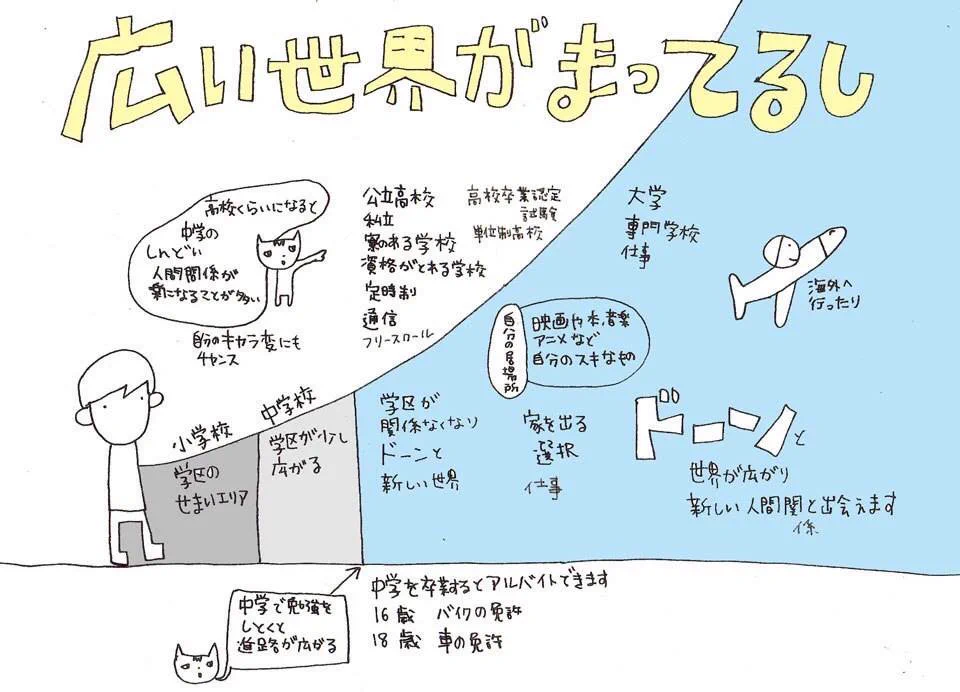 広い世界がまってるし
高校くらいになると
中学の
しんどい
人間関係が
楽になることが多い
自分のキャラ変にも
チャンス
公立高校
私立
寮のある学校
資格がとれる学校
定時制
通信
フリースクール
高校卒業認定
試験
単位制高校
大学
専門学校
仕事
海外へ
行ったり
自分の居場所
映画や本、音楽
アニメなど
自分のスキなもの
小学校
学区の
せまいエリア
中学校
学区が少し
広がる
学区が
関係なくなり
ドーンと
新しい世界
家を出る
選択
仕事
ドーーンと
世界が広がり
新しい人間関と出会えます
係
中学で勉強を
しとくと
進路が広がる
中学を卒業するとアルバイトできます
16歳 バイクの免許
18歳 車の免許